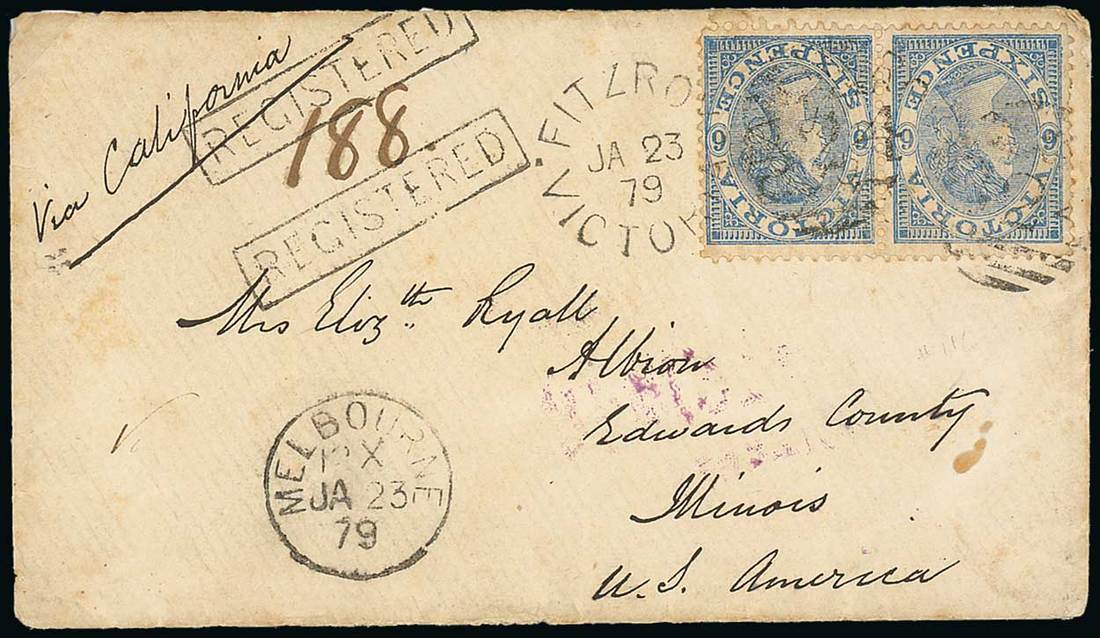 Via California
REGISTERED
188.
REGISTERED
FITZRO
JA 23
79
VICTOR
SIXPENCE
6 6
VICTORIA
SIXPENCE
6 6
VICTORIA
Mrs Eliz.th Ryall
Albion
Edwards County
Illinois
U.S. America
MELBOURNE
X
JA 23
79